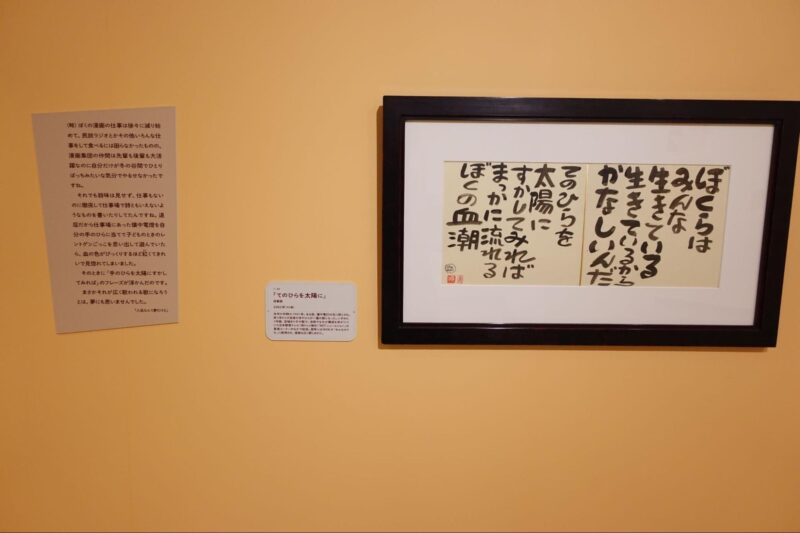 (略) ぼくの漫画の仕事は徐々に減り始
めて。民放ラジオとかその他いろんな仕
事をして食べるには困らなかったものの、
漫画集団の仲間は先輩も後輩も大活
躍なのに自分だけが冬の谷間でひとり
ぼっちみたいな気分でやるせなかったで
すね。
それでも弱味は見せず、仕事もない
のに徹夜して仕事場で詩ともいえないよ
うなものを書いたりしてたんですね。退
屈だから仕事場にあった懐中電燈を自
分の手のひらに当てて子どものときのレ
ントゲンごっこを思い出して遊んでいた
ら、血の色がびっくりするほど紅くてきれ
いで見惚れてしまいました。
そのときに「手のひらを太陽にすかし
てみれば」のフレーズが浮かんだのです。
まさかそれが広く歌われる歌になろう
とは、夢にも思いませんでした。
「てのひらを太陽に」
ぼくらは
みんな
生きている
生きているから
かなしいんだ
てのひらを
太陽に
すかしてみれば
まっかに流れる
ぼくの血潮